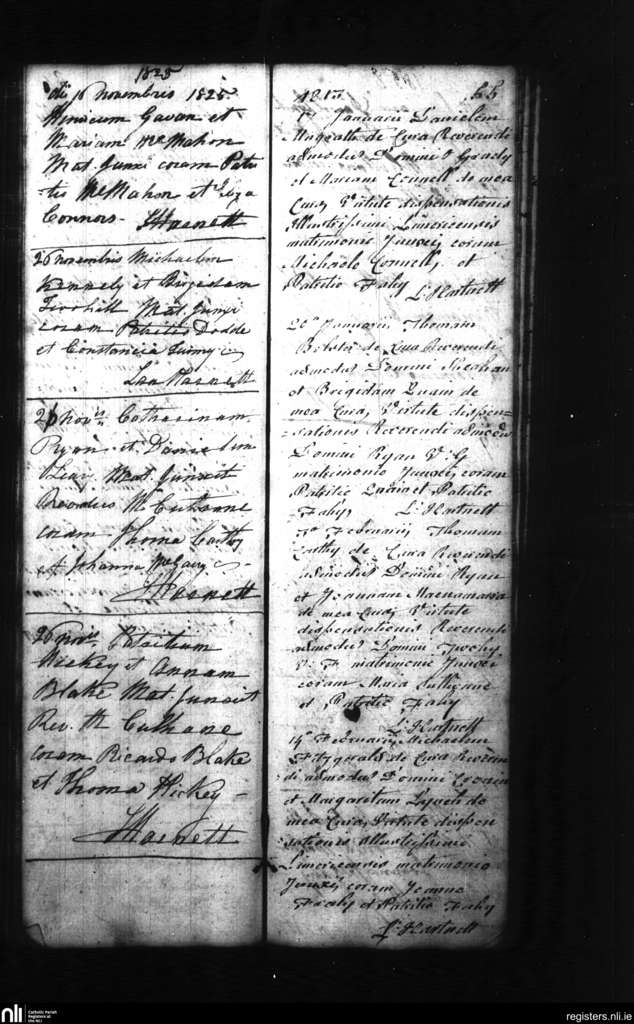 1825
die 16 Novembris 1825
Henricum Gavan et
Mariam McMahon
Mat. Junxi coram Patri
tio McMahon et Eliza
Connors - LHarnett
26 Novembris Michaelem
Kennely et Brigidam
Mat. Junxi
coram Patritio Dodde
et Constancia
Lau Harnett
26 Novris Catherinam
Ryan et Danielem
Leary Mat. Junxit
Revdus M Culhane
coram Thoma Carthy
et Johanna McGary
LHarnett
26 Novris Patritium
Hickey et Annam
Blake Mat. Junxit
Rev. M Culhane
coram Ricardo Blake
et Thoma Hickey -
LHarnett
Januarii Danielem
Magrath de Cura Reverendi
admodus Domini Grady
et Mariam Connell de mea
Cura, Virtute dispensationis
Illustrissimi Limericensis
matrimonio Junxi, coram
Michaele Connell, et
Patritio Fahy L. Hartnett
20o Januarii, Thomam
de Cura Reverendi
admodus Domini Sheahan
et Brigidam Quain de
mea Cura, Virtute dispen-
-sationis Reverendi admodu
Domini Ryan V. G
matrimonio Junxi, coram
Patritio Quain et Patritio
Fahy, L. Hartnett
Februarii Thomam
Carthy de Cura Reverendi
admodus Domini Ryan
et Joannam Macnamara
de mea Cura, Virtute
dispensationis Reverendi
admodus Domini Twohy
V. F matrimonio Junxi
coram Maria Sullivane
et Patritio Fahy
L. Hartnett
14o Februarii, Michaelem
Fitzgerald de Cura Reveren
di admodus Domini
et Margaritam Lynch de
mea Cura, Virtute dispen
sationis Illustrissimi
Limericensis matrimonio
Junxi coram Joanne
Fahy et Patritio Fahy
L. Hartnett
nli
Catholic Parish
Registers at
the NLI
registers.nli.ie